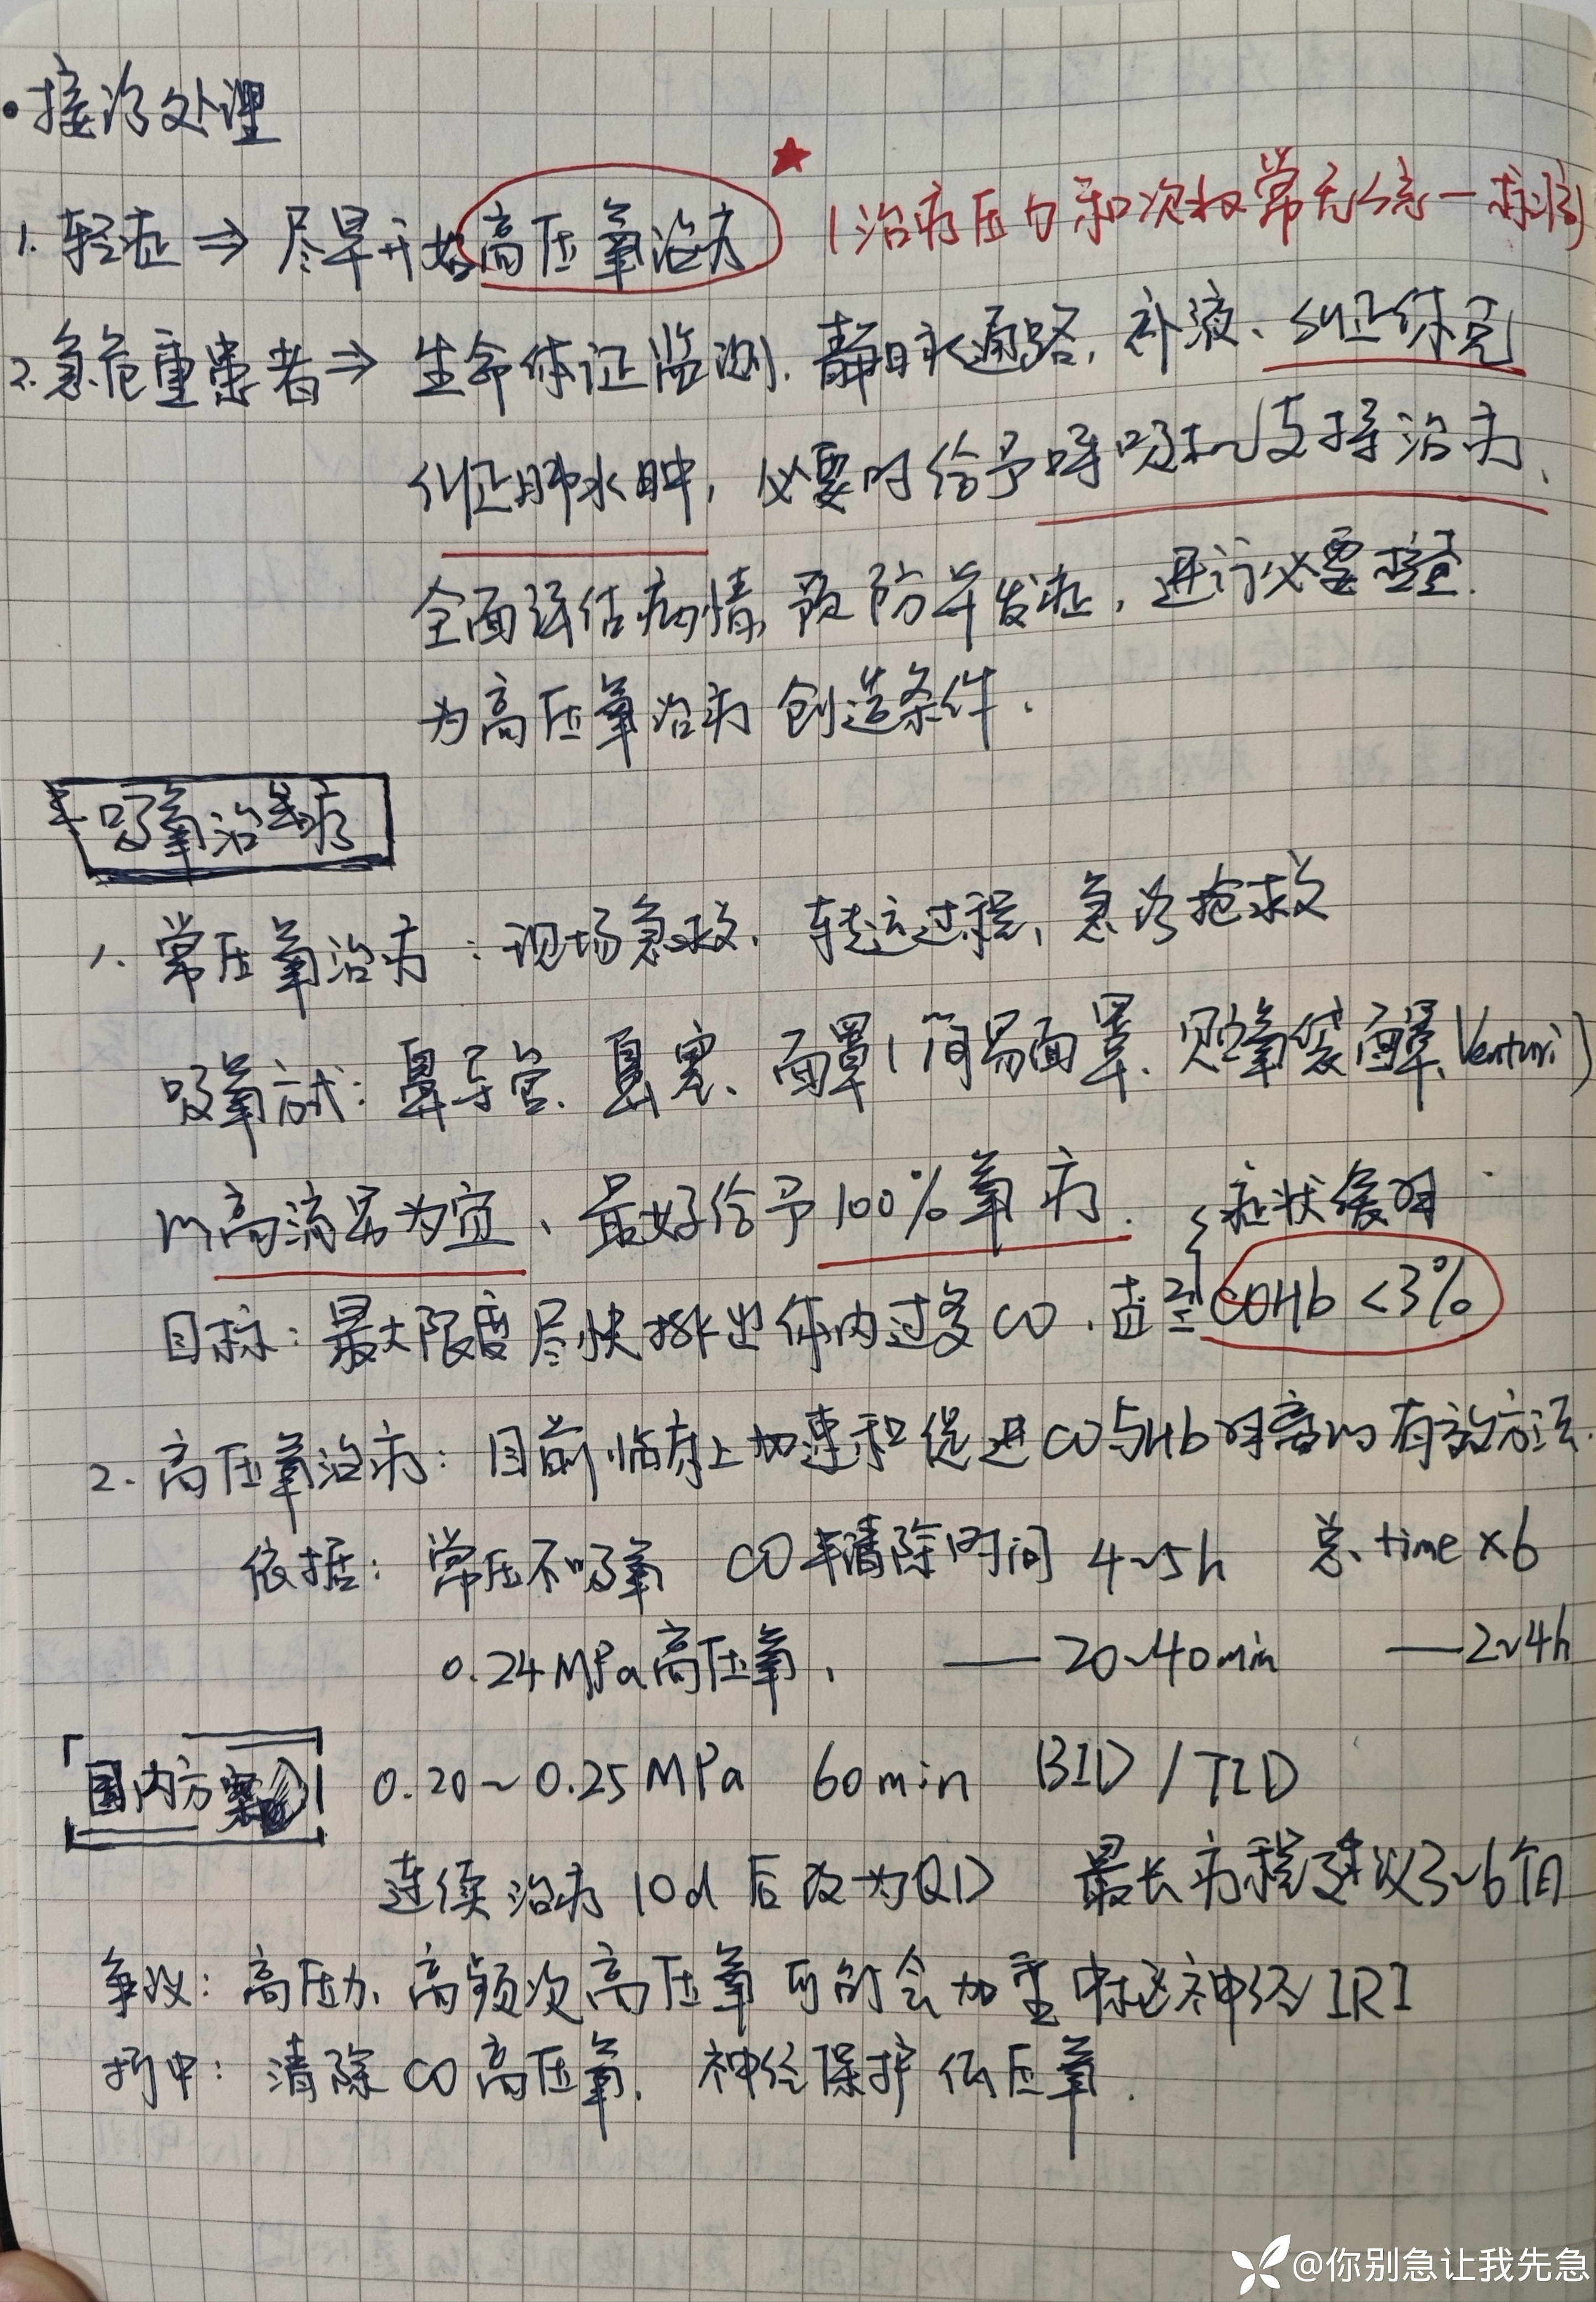 ·接诊处理
1. 轻症 ⇒ 尽早开始高压氧治疗 ★ (治疗压力和次数常无统一标准)
2. 急危重患者 ⇒ 生命体证监测、静脉通路、补液、纠正休克
纠正肺水肿, 必要时给予呼吸机支持治疗、
全面评估病情, 预防并发症, 进行必要检查.
为高压氧治疗创造条件.
吸氧治疗
1. 常压氧治疗: 现场急救、转运过程、急诊抢救
吸氧方式: 鼻导管、鼻塞、面罩(简易面罩、贮氧袋面罩、Venturi)
以高流量为宜、最好给予100%氧疗.
目标: 最大限度尽快排出体内过多CO, 直至{症状缓解
COHb <3%
2. 高压氧治疗: 目前临床上加速和促进CO与Hb解离的有效方法.
依据: 常压不吸氧 CO半清除时间 4~5h 总time ×6
0.24MPa高压氧, —— 20~40min —— 2~4h
国内方案 0.20~0.25MPa 60min BID / TID
连续治疗10d后改为QD 最长疗程建议3~6个月
争议: 高压力、高频次高压氧可能会加重中枢神经IRI
折中: 清除CO高压氧, 神经保护低压氧.
@你别急让我先急